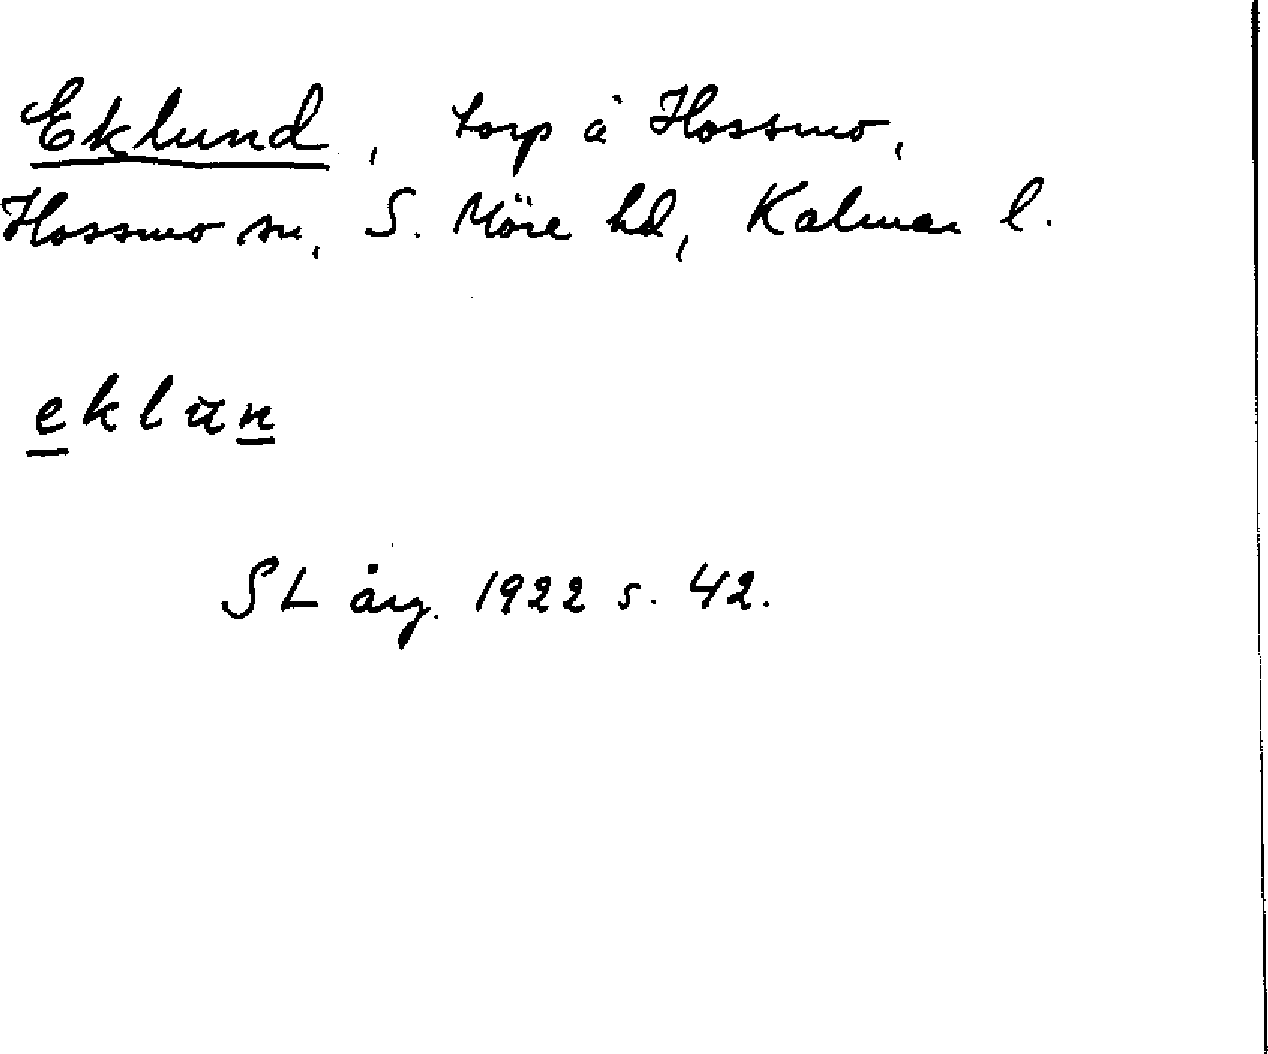 Eklund, torp å Hossmo,
Hossmo sn, S. Möre hd, Kalmar l.
eklun
SL årg. 1922 s. 42.